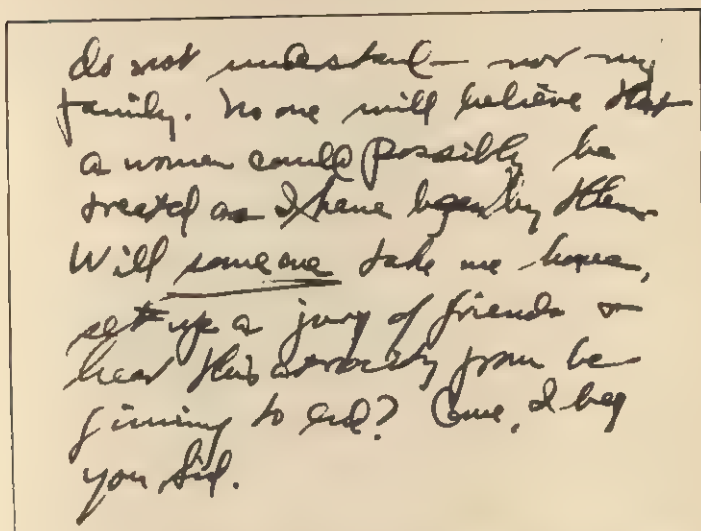 do not understand — nor my
family. No one will believe that
a women could possibly be
treated as I have been by them
Will someone take me home,
set up a jury of friends or
hear this atrocity from be
ginning to end? Come, I beg
you Sid.